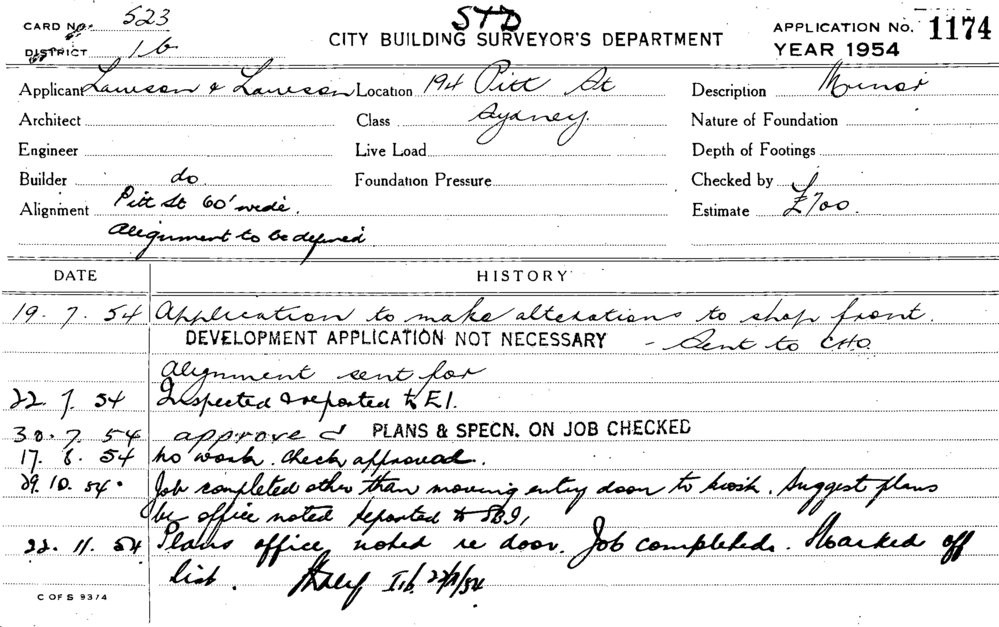 STD
CARD No. 523
CITY BUILDING SURVEYOR'S DEPARTMENT
APPLICATION No. 1174
DISTRICT 1b
YEAR 1954
Applicant Lawson & Lawson Location 194 Pitt St Description Minor
Architect Class Sydney. Nature of Foundation
Engineer Live Load Depth of Footings
Builder do Foundation Pressure Checked by
Alignment Pitt St 60' wide. Estimate £700.
Alignment to be defined
DATE HISTORY
19. 7. 54 Application to make alterations to shop front.
DEVELOPMENT APPLICATION NOT NECESSARY - Sent to CHO
Alignment sent for
22. 7. 54 Inspected & reported to E1.
30. 7. 54 approved PLANS & SPECN. ON JOB CHECKED
17. 8. 54 No work. Check approved.
29. 10. 54. Job completed other than moving entry door to kiosk. Suggest plans
be office noted reported to SBI,
22. 11. 54 Plans office noted re door. Job completed. Marked off
list. I1b. 22/11/54
C OF S 93/4